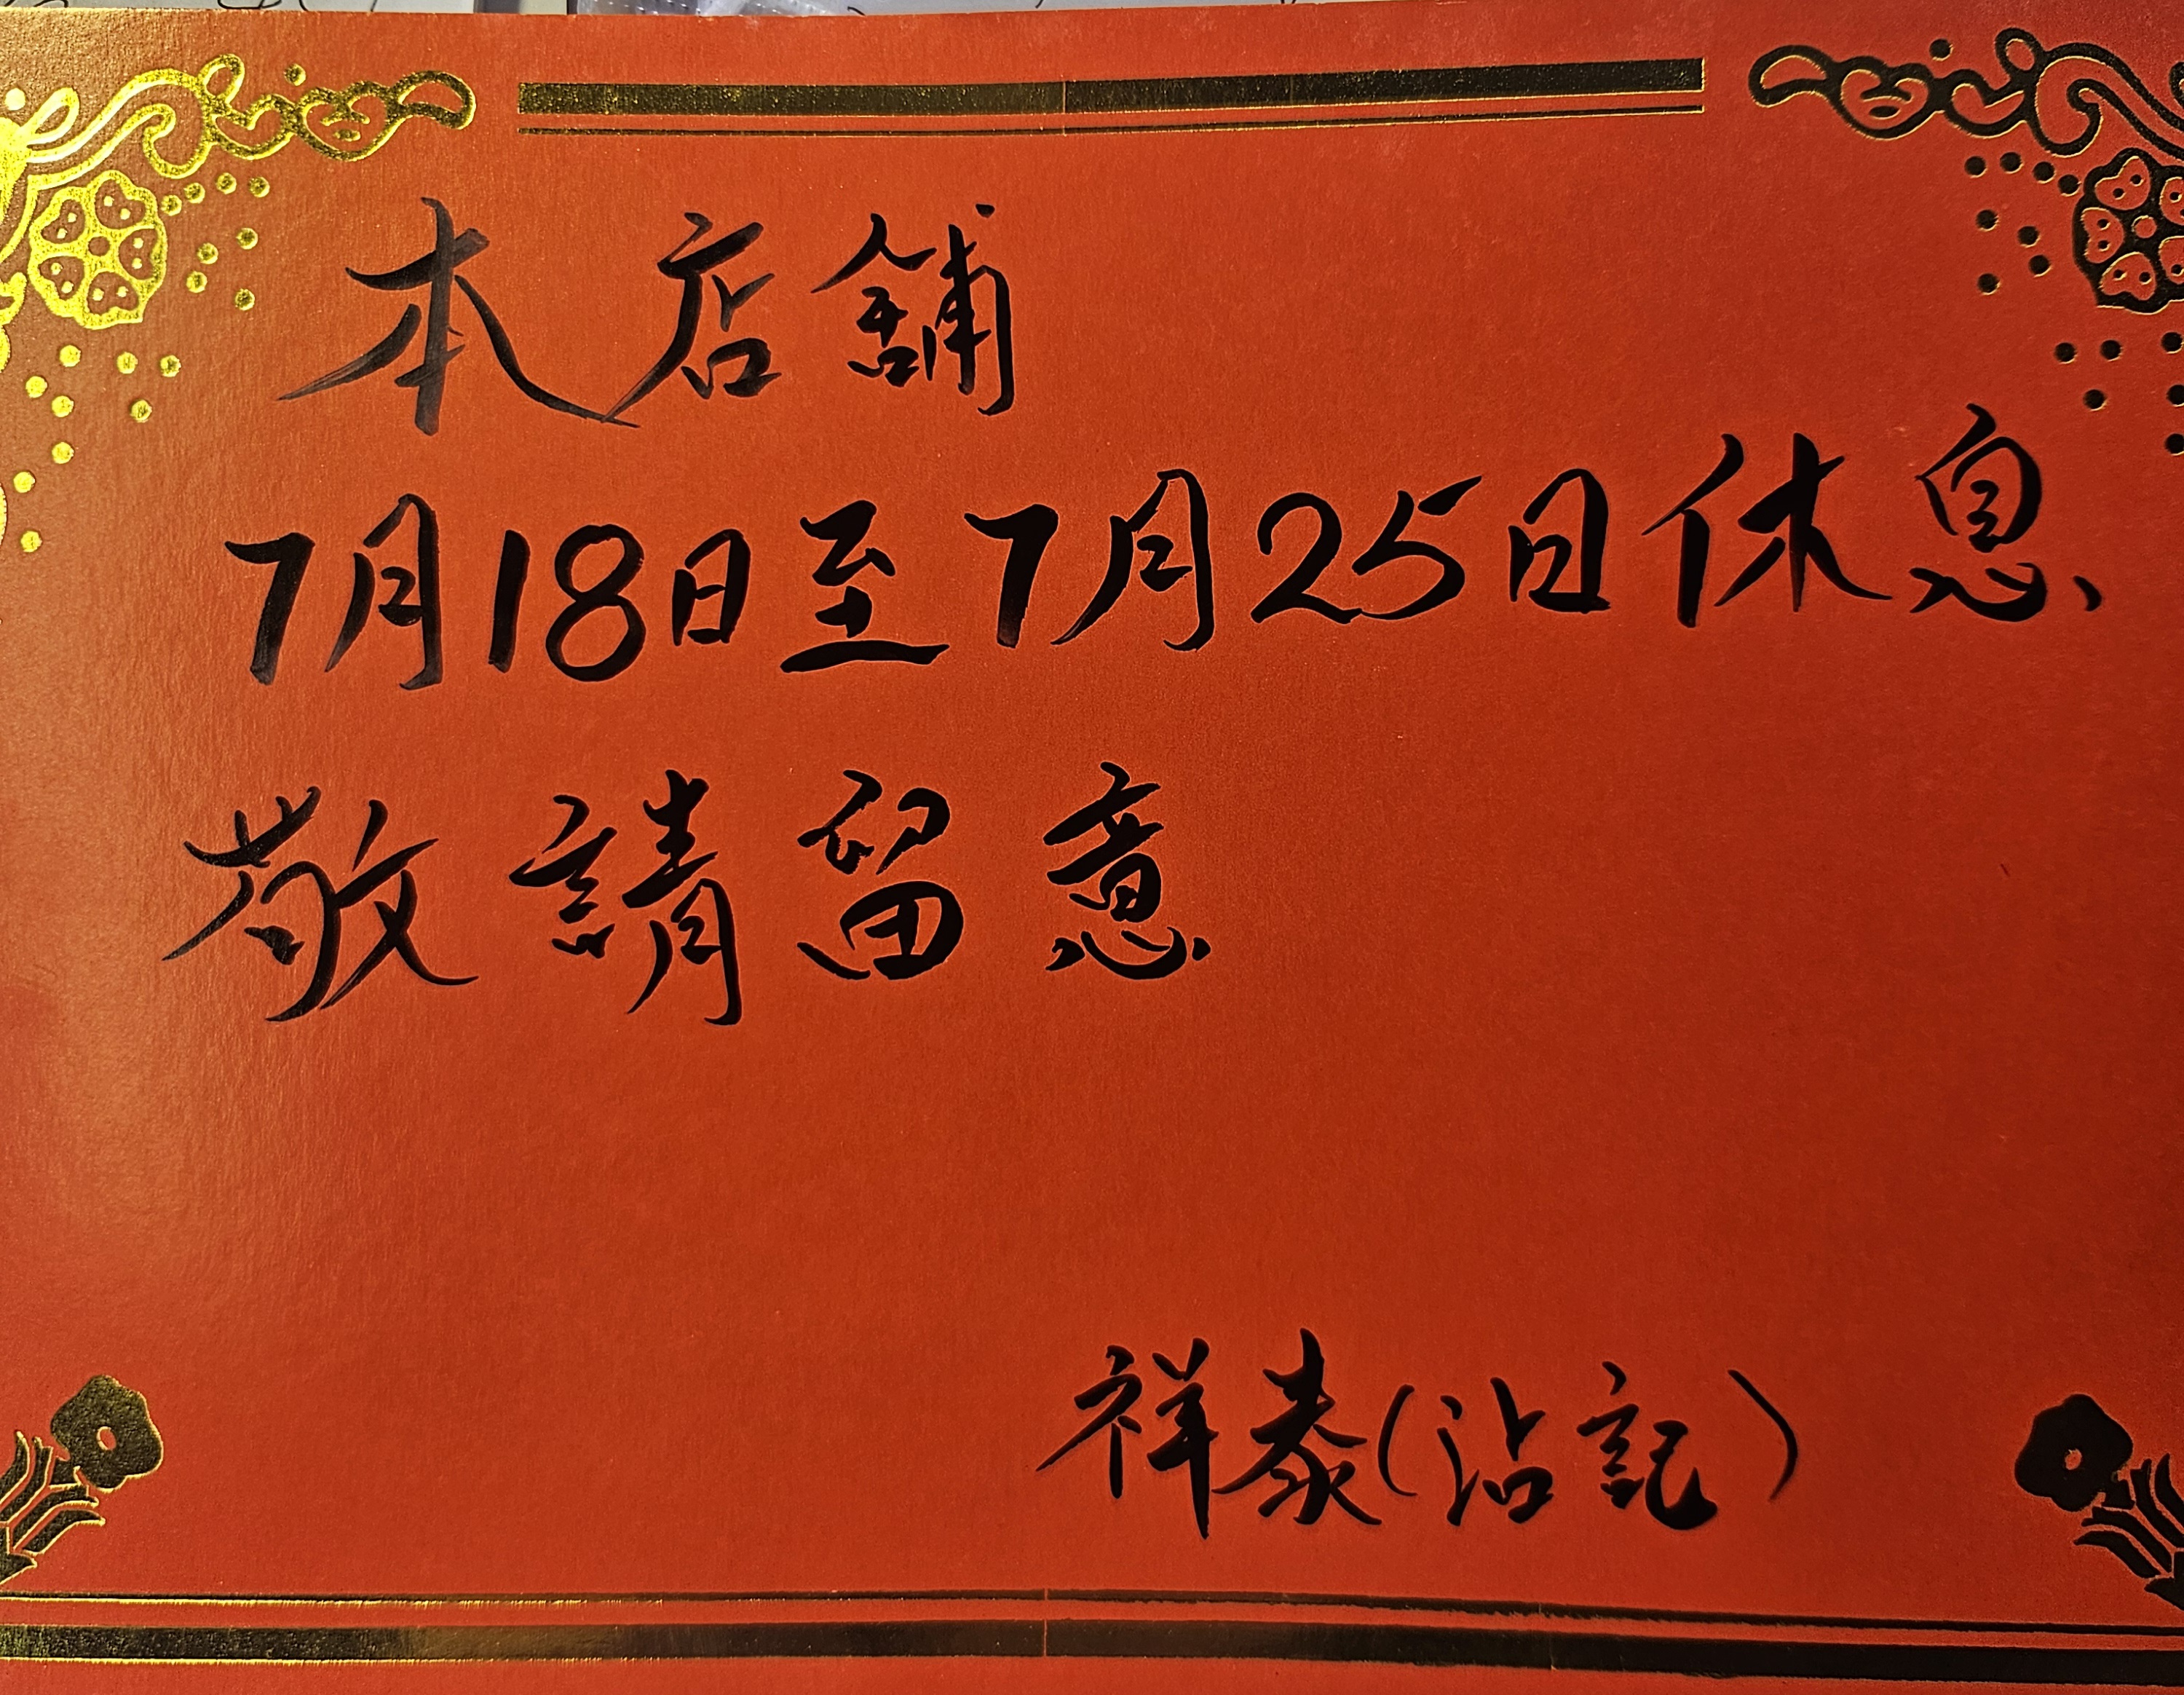 本店舖
7月18日至7月25日休息
敬請留意
祥泰(沾記)